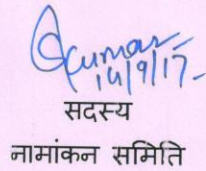 Qkumar
14/9/17-
सदस्य
नामांकन समिति